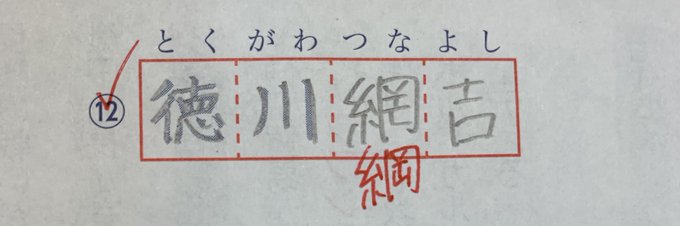 とくがわつなよし
⑫ 徳川網吉
綱